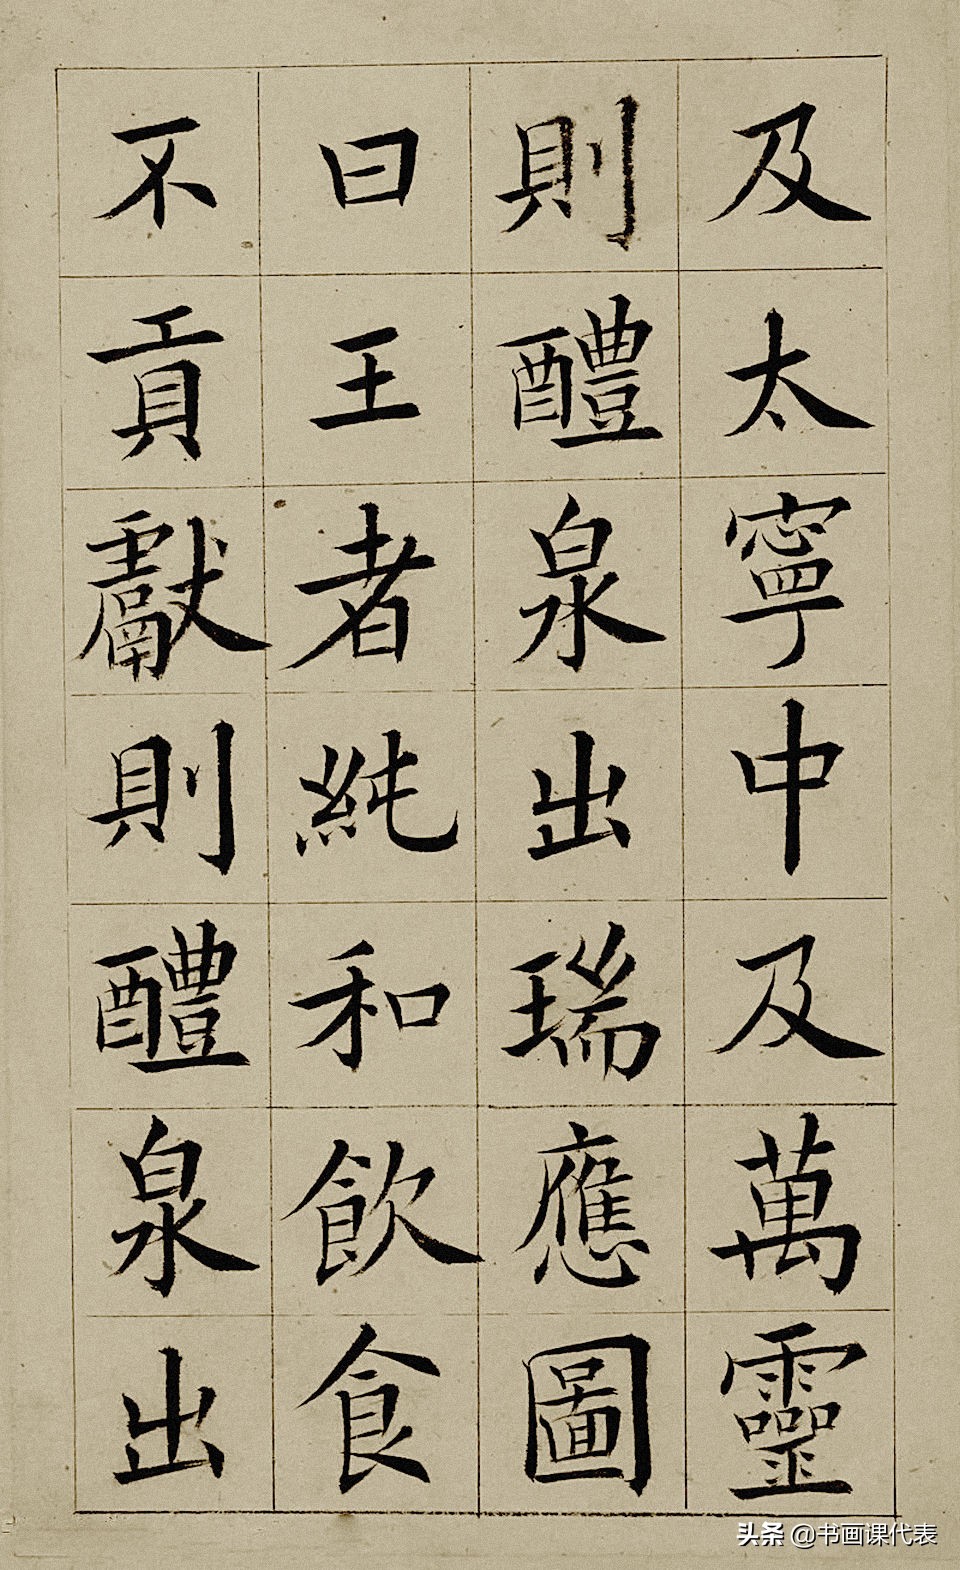 及太寧中及萬靈
則醴泉出瑞應圖
曰王者純和飲食
不貢獻則醴泉出
头条 @书画课代表